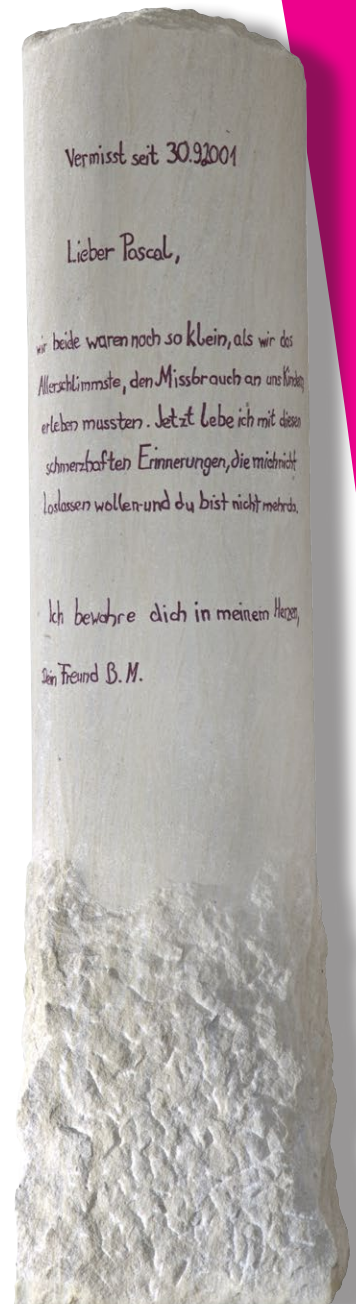 Vermisst seit 30.9.2001
Lieber Pascal,
wir beide waren noch so klein, als wir das
Allerschlimmste, den Missbrauch an uns Kindern
erleben mussten. Jetzt lebe ich mit diesen
schmerzhaften Erinnerungen, die mich nicht
loslassen wollen-und du bist nicht mehr da.
Ich bewahre dich in meinem Herzen,
Dein Freund B. M.